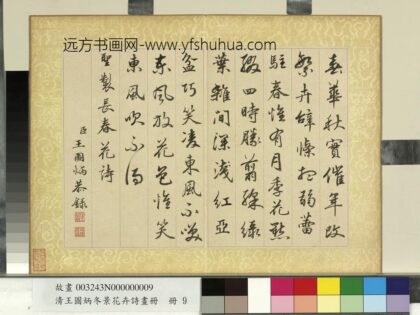 远方书画网-www.yfshuhua.com
春華秋實催年改
卉辭條弱蕾
駐春惟有月季花點
綴四時勝翦綵綠
葉雜間深淺紅亞
盆巧笑凌東風不
東風放花色惟笑
東風吹不得
聖製長春花詩
臣王圖炳恭錄
故畫 003243N000000009
清王圖炳冬景花卉詩畫冊 冊 9